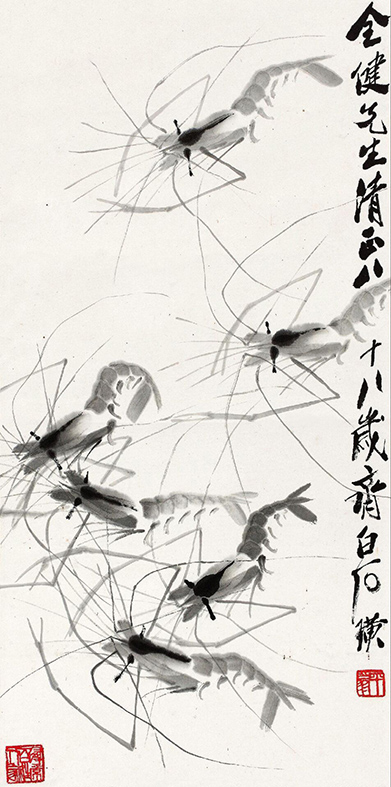 全健先生清正八十八歲齊白石璜